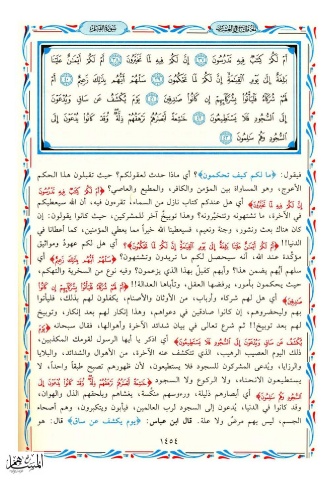 سورة القلم
أَمْ لَكُمْ كِتَابٌ فِيهِ تَدْرُسُونَ ۝٣٧ إِنَّ لَكُمْ فِيهِ لَمَا تَخَيَّرُونَ ۝٣٨ أَمْ لَكُمْ أَيْمَانٌ عَلَيْنَا
بَالِغَةٌ إِلَى يَوْمِ الْقِيَامَةِ إِنَّ لَكُمْ لَمَا تَحْكُمُونَ ۝٣٩ سَلْهُمْ أَيُّهُمْ بِذَلِكَ زَعِيمٌ ۝٤٠ أَمْ
لَهُمْ شُرَكَاءُ فَلْيَأْتُوا بِشُرَكَائِهِمْ إِنْ كَانُوا صَادِقِينَ ۝٤١ يَوْمَ يُكْشَفُ عَنْ سَاقٍ وَيُدْعَوْنَ
إِلَى السُّجُودِ فَلَا يَسْتَطِيعُونَ ۝٤٢ خَاشِعَةً أَبْصَارُهُمْ تَرْهَقُهُمْ ذِلَّةٌ وَقَدْ كَانُوا يُدْعَوْنَ إِلَى
السُّجُودِ وَهُمْ سَالِمُونَ ۝٤٣
فيقول: ﴿ما لكم كيف تحكمون﴾؟ أي ماذا حدث لعقولكم؟ حيث تقبلون هذا الحكم
الأعوج، وهو المساواة بين المؤمن والكافر، والمطيع والعاصي؟ ﴿أَمْ لَكُمْ كِتَابٌ فِيهِ تَدْرُسُونَ
إِنَّ لَكُمْ فِيهِ لَمَا تَخَيَّرُونَ﴾؟ أي هل عندكم كتاب نازل من السماء، تقرءون فيه، أن الله سيعطيكم
في الآخرة، ما تشتهونه وتتخيّرونه؟ وهذا توبيخٌ آخر للمشركين، حيث كانوا يقولون: إن
كان هناك بعث ونشور، وجنة ونعيم، فسيعطينا الله خيراً مما يعطي المؤمنين، كما أعطانا في
الدنيا!! ﴿أَمْ لَكُمْ أَيْمَانٌ عَلَيْنَا بَالِغَةٌ إِلَى يَوْمِ الْقِيَامَةِ إِنَّ لَكُمْ لَمَا تَحْكُمُونَ﴾؟ أي هل لكم عهودٌ ومواثيق
مؤكّدة عند الله، أنه سيحصل لكم ما تريدون وتشتهون؟ ﴿سَلْهُمْ أَيُّهُمْ بِذَلِكَ زَعِيمٌ﴾ أي
سلهم أيهم يضمن هذا؟ وأيهم كفيلٌ بهذا الذي يزعمون؟ وفيه نوع من السخرية والتهكم،
حيث يحكمون بأمور، يرفضها العقل، وتأباها العدالة!! ﴿أَمْ لَهُمْ شُرَكَاءُ فَلْيَأْتُوا بِشُرَكَائِهِمْ إِنْ كَانُوا
صَادِقِينَ﴾ أي هل لهم شركاء وأرباب، من الأوثان والأصنام، يكفلون لهم بذلك، فليأتوا
بهم وليحضروهم، إن كانوا صادقين في دعواهم، وهذا إنكار لهم بعد إنكار، وتوبيخ
لهم بعد توبيخ!! ثم شرع تعالى في بيان شدائد الآخرة وأهوالها، فقال سبحانه ﴿يَوْمَ
يُكْشَفُ عَنْ سَاقٍ وَيُدْعَوْنَ إِلَى السُّجُودِ فَلَا يَسْتَطِيعُونَ﴾ أي اذكر يا أيها الرسول لقومك المكذبين،
ذلك اليوم العصيب الرهيب، الذي تتكشف عنه الآخرة، من الأهوال والشدائد، والبلايا
والرزايا، ويُدعى المشركون للسجود فلا يستطيعون، لأن ظهورهم تصبح طبقاً واحداً، لا
يستطيعون الانحناء، ولا الركوع ولا السجود ﴿خَاشِعَةً أَبْصَارُهُمْ تَرْهَقُهُمْ ذِلَّةٌ وَقَدْ كَانُوا يُدْعَوْنَ إِلَى
السُّجُودِ وَهُمْ سَالِمُونَ﴾ أي أبصارهم ذليلة، ورءوسهم منكّسة، يغشاهم ويلحقهم الذل والهوان،
وقد كانوا في الدنيا، يُدعون إلى السجود لرب العالمين، فيأبون ويتكبرون، وهم أصحاء
الجسم، ليس بهم مرضٌ ولا علة. قال ابن عباس: ﴿يوم يكشف عن ساق﴾ قال: هو
١٤٥٤